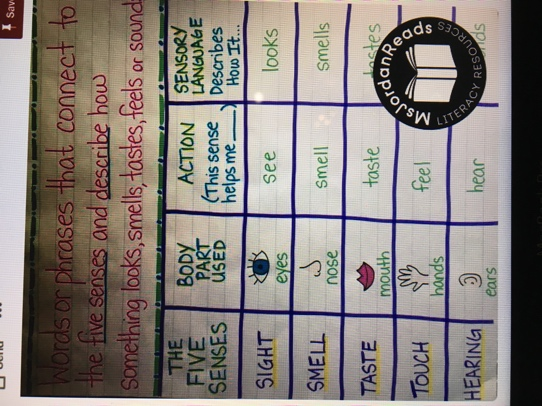 Words or phrases that connect to
the five senses and describe how
something looks, smells, tastes, feels or sound
THE FIVE SENSES
BODY PART USED
ACTION (This sense helps me ___)
SENSORY LANGUAGE Describes How It...
SIGHT eyes see looks
SMELL nose smell smells
TASTE mouth taste tastes
TOUCH hands feel
HEARING ears hear
MsJordanReads
LITERACY RESOURCES
Save
Send